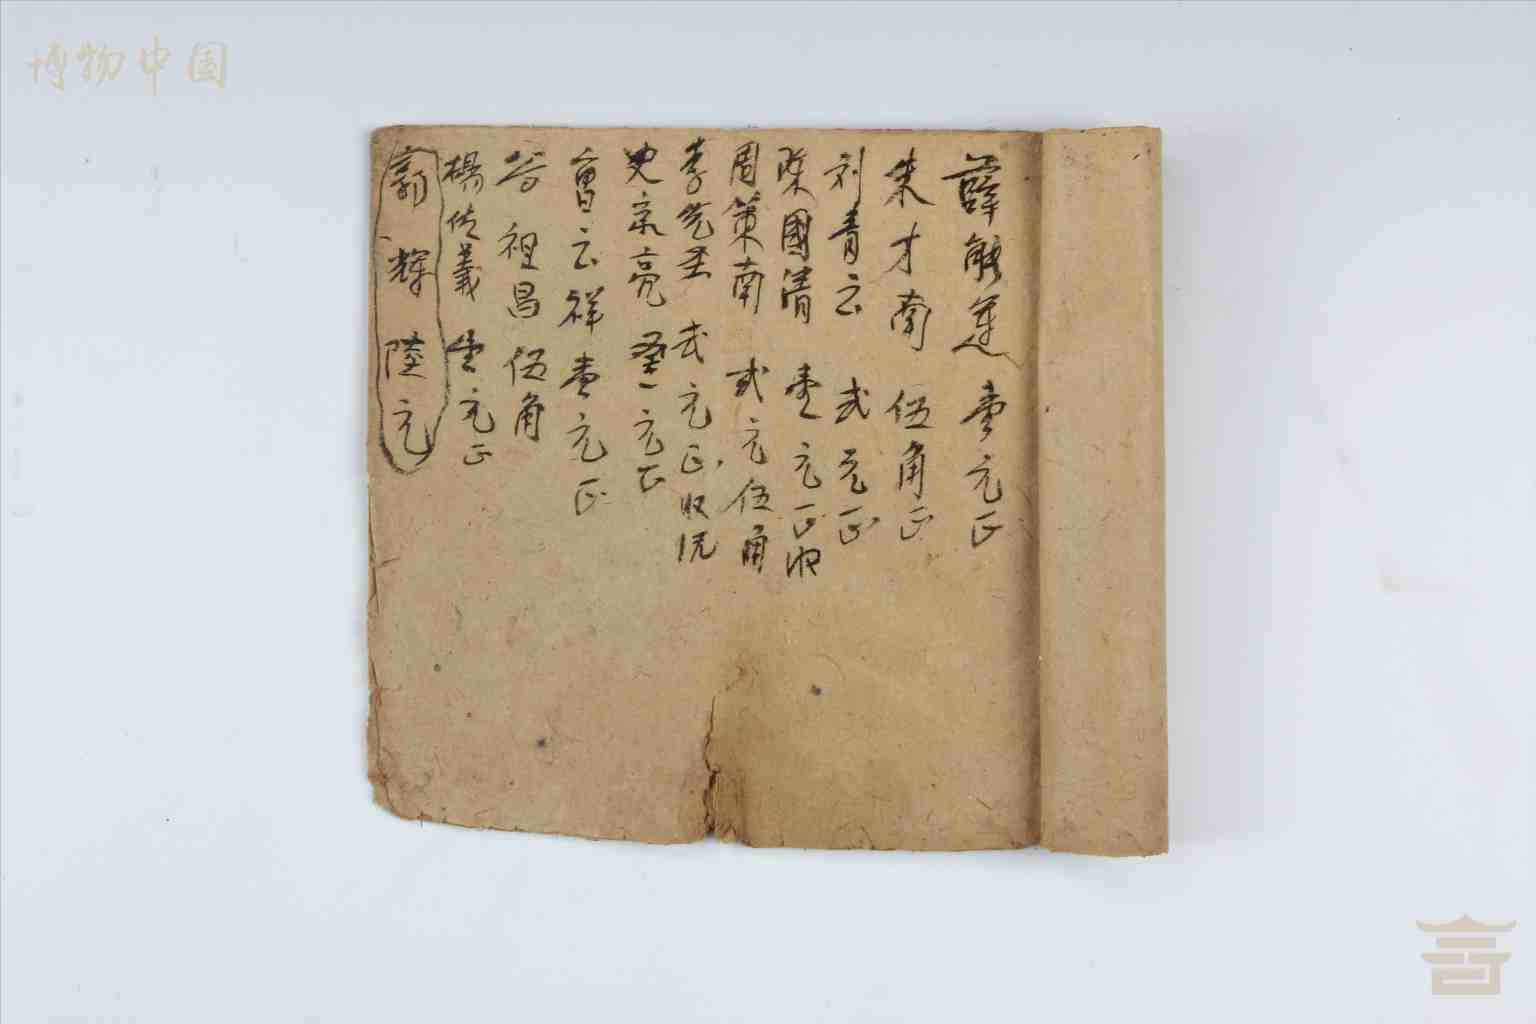 博物中国
薛能蓮 壹元正
朱才南 伍角正
刘青云 弍元正
陈國清 壹元正收
周策南 弍元伍角
李先圣 弍元正收讫
史京亮 壹元正
曹云祥 壹元正
谷祖昌 伍角
楊佐義 壹元正
郭輝 陸元